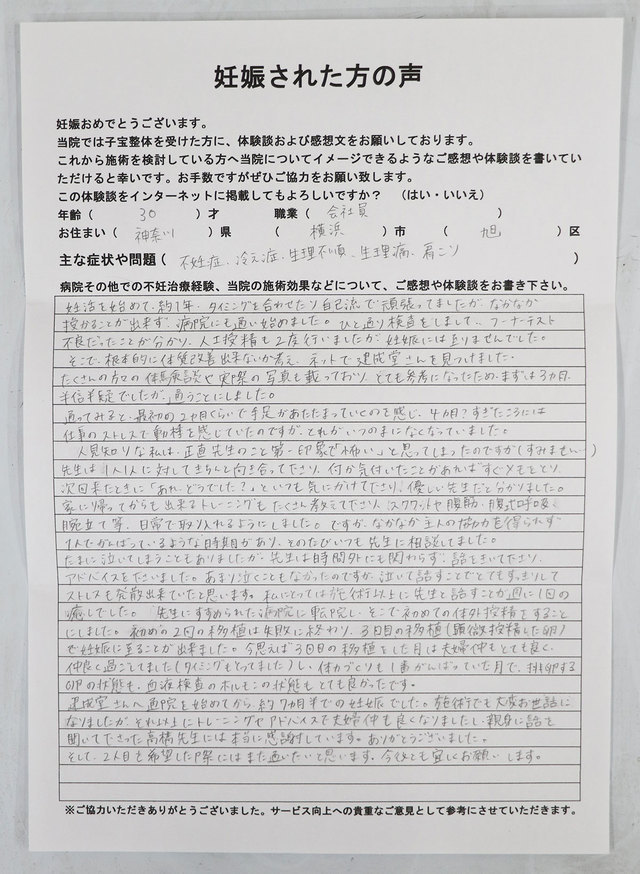 妊娠された方の声
妊娠おめでとうございます。
当院では子宝整体を受けた方に、体験談および感想文をお願いしております。
これから施術を検討している方へ当院についてイメージできるようなご感想や体験談を書いてい
ただけると幸いです。お手数ですがぜひご協力をお願い致します。
この体験談をインターネットに掲載してもよろしいですか？　（はい・いいえ）
年齢（　30　）才　職業（　会社員　）
お住まい（　神奈川　）県（　横浜　）市（　旭　）区
主な症状や問題（　不妊症、冷え症、生理不順、生理痛、肩こり　）
病院その他での不妊治療経験、当院の施術効果などについて、ご感想や体験談をお書き下さい。
妊活を始めて、約1年、タイミングを合わせたり自己流で頑張ってましたが、なかなか
授かることが出来ず、病院にも通い始めました。ひと通り検査をしまして、フーナーテスト
不良だったことが分かり、人工授精も2度行いましたが、妊娠には至りませんでした。
そこで、根本的に体質改善出来ないか考え、ネットで建成堂さんを見つけました。
たくさんの方々の体験談や実際の写真も載っており、とても参考になったため、まずは3カ月、
半信半疑でしたが、通うことにしました。
通ってみると、最初の2カ月くらいで手足があたたまっていくのを感じ、4カ月?すぎたころには
仕事のストレスで動悸を感じていたのですが、それがいつのまにかなくなっていました。
人見知りな私は、正直先生のこと第一印象で「怖い…」と思ってしまったのですが(すみません…)
先生は1人1人に対してきちんと向き合って下さり、何か気付いたことがあればすぐメモをとり、
次回来たときに「あれ、どうでした?」といつも気にかけて下さり、優しい先生だと分かりました。
家に帰ってからも出来るトレーニングもたくさん教えて下さり、(スクワットや腹筋、腹式呼吸、
腕立て等、日常で取り入れるようにしました。ですが、なかなか主人の協力を得られず
1人でがんばっているような時期があり、そのたびいつも先生に相談してました。
たまに泣いてしまうこともありましたが、先生は時間外にも関わらず、話をきいて下さり、
アドバイスをださいました。あまり泣くこともなかったのですが、泣いて話すことでとてもすっきりして
ストレスも発散出来ていたと思います。私にとっては施術以上に先生と話すことが週に1回の
癒しでした。先生にすすめられた病院に転院し、そこで初めての体外授精をすること
にしました。初めの2回の移植は失敗に終わり、3回目の移植(顕微授精した卵)
で妊娠に至ることが出来ました。今思えば3回目の移植をした月は夫婦仲もとても良く、
仲良く過ごてました(タイミングもとってました)し、体力づくりも1番がんばっていた月で、排卵する
卵の状態も、血液検査のホルモンの状態もとても良かったです。
建成堂さんへ通院を始めてから、約7カ月半での妊娠でした。施術でも大変お世話に
なりましたが、それ以上にトレーニングやアドバイスで夫婦仲も良くなりましたし、親身に話を
聞いて下さった高橋先生には本当に感謝しています。ありがとうございました。
そして、2人目も希望した際にはまた通いたいと思います。今後とも宜しくお願いします。
※ご協力いただきありがとうございました。サービス向上への貴重なご意見として参考にさせていただきます。